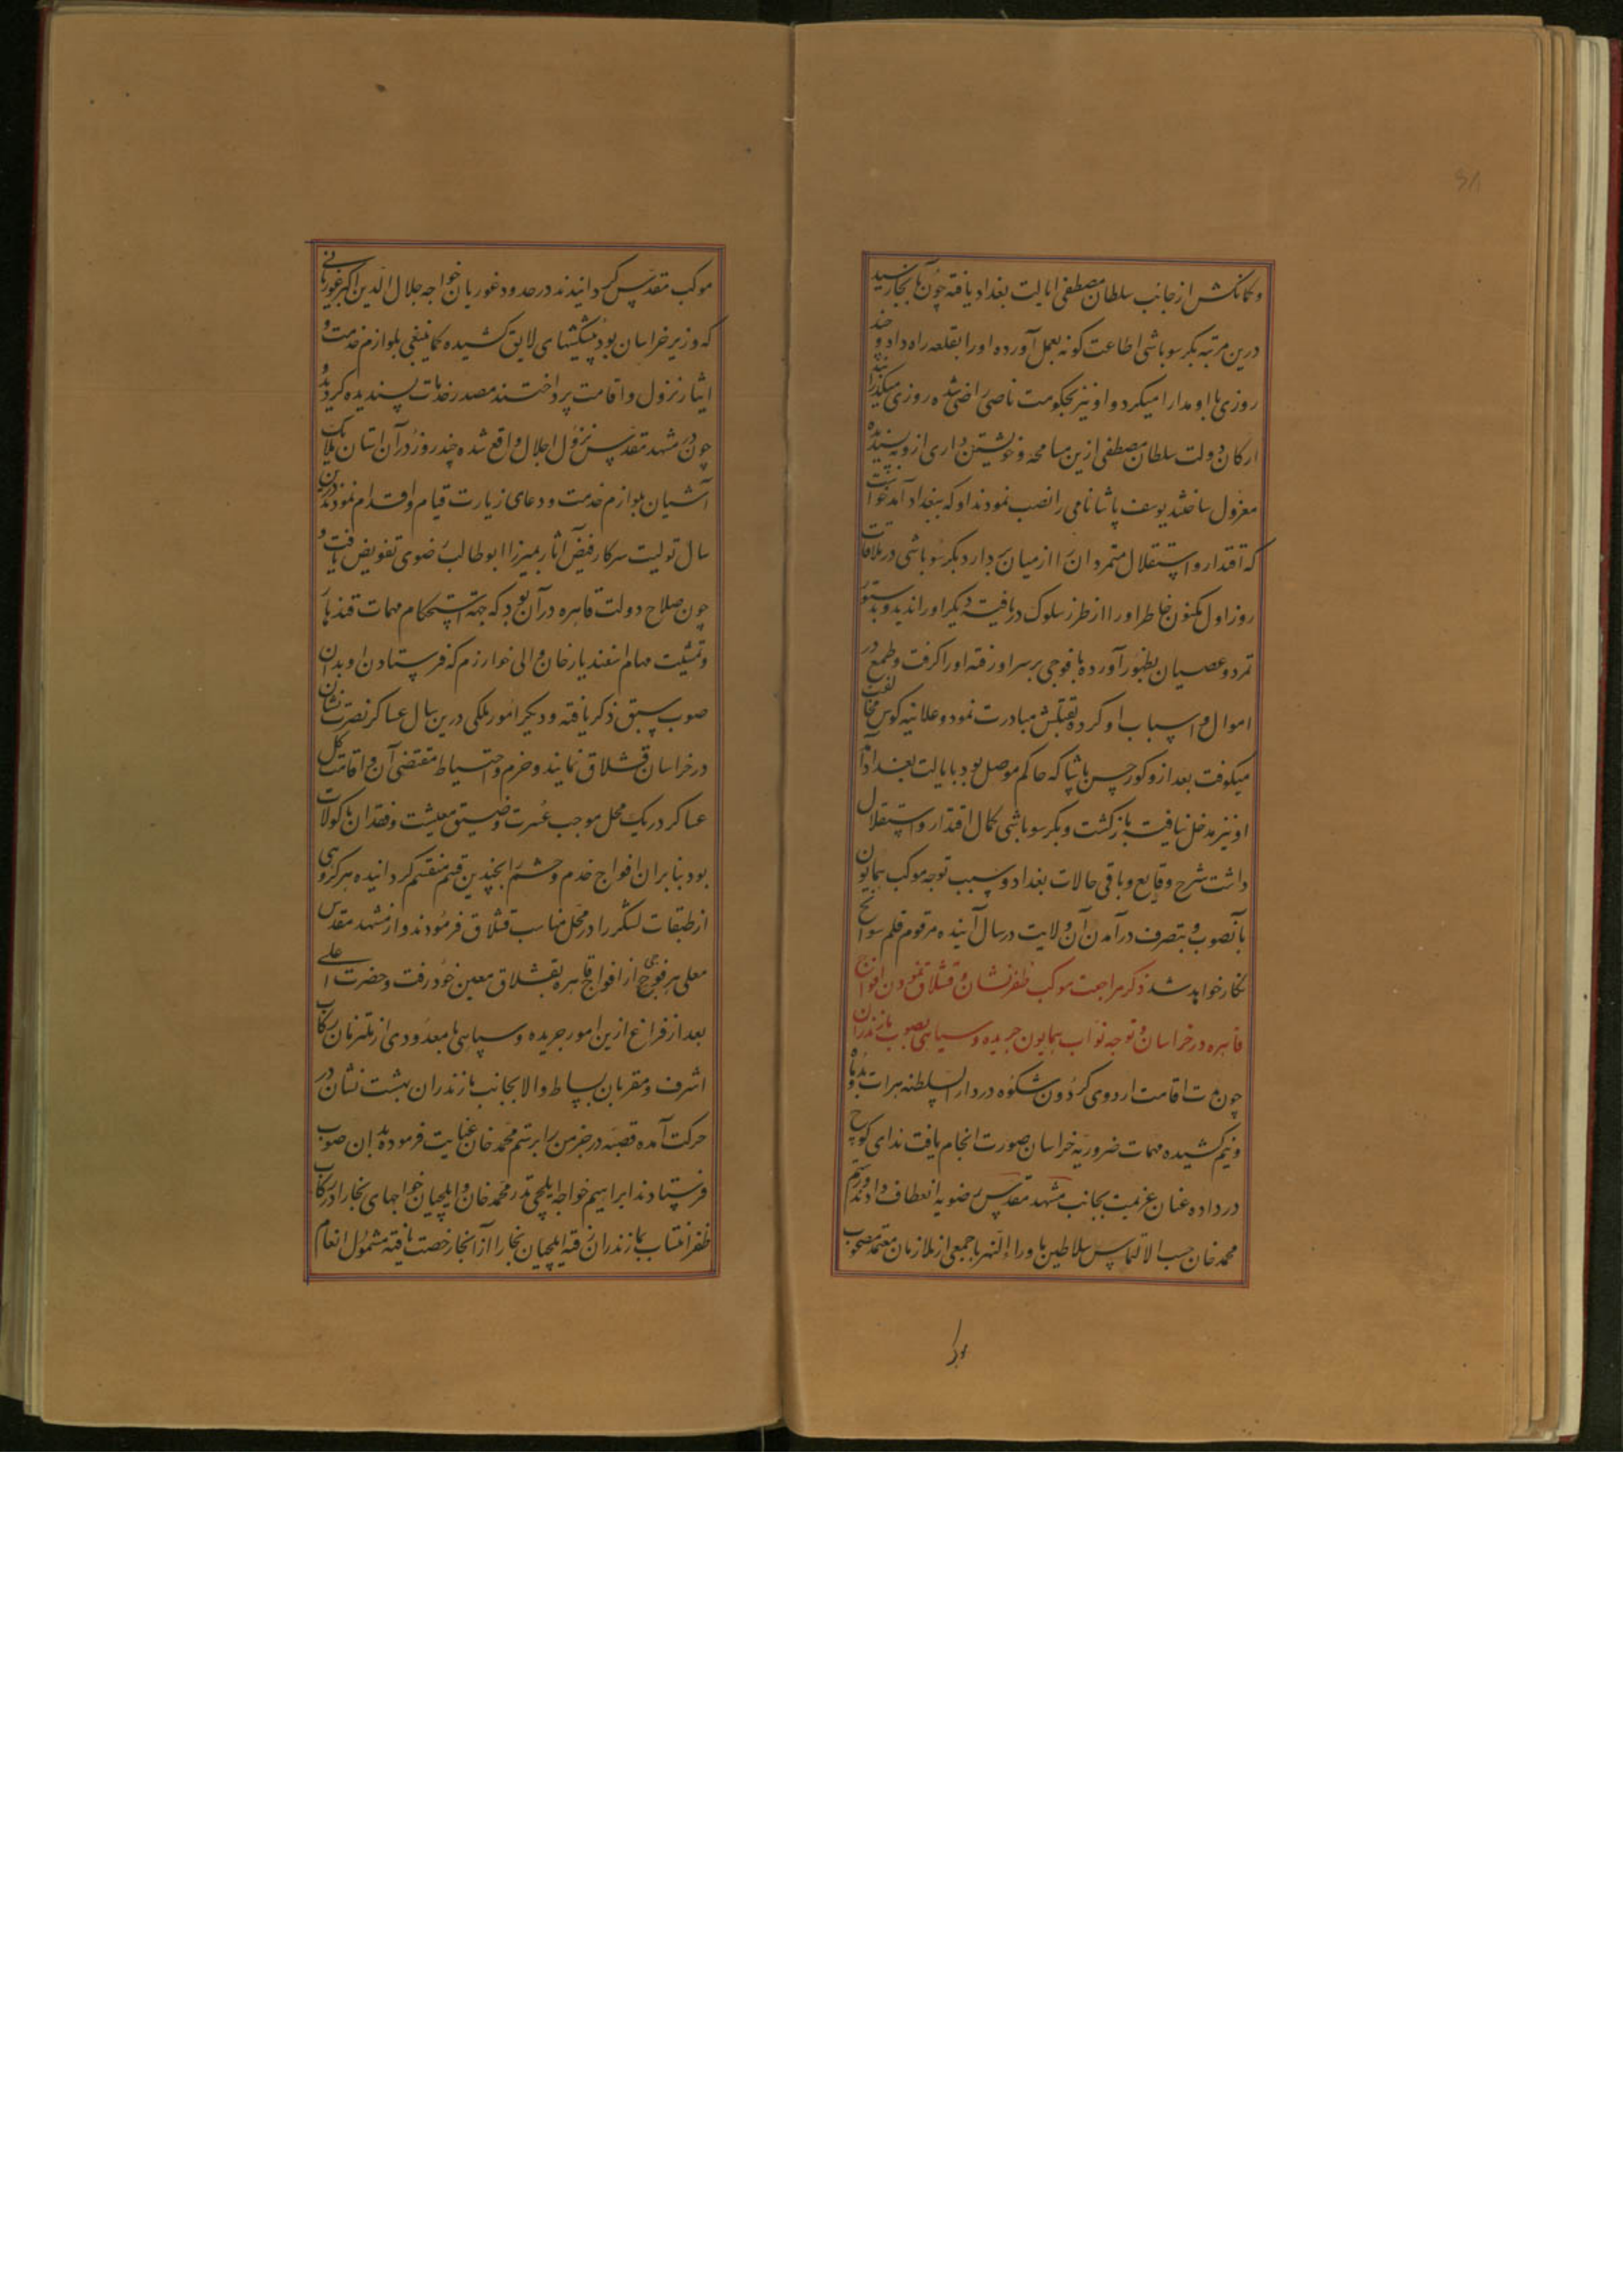 وکمانکش از جانب سلطان مصطفی ایالت بغداد یافته چون بآنجا رسید
درین مرتبه بکر سوباشی اطاعت کونه بعمل آورده او را بقلعه راه داد و چند
روزی با او مدارا میکرد و او نیز بحکومت ناقص راضی شده روزی میکذرانید
ارکان دولت سلطان مصطفی ازین مسامحه و خویشتن داری ازو نپسندیده
معزول ساختند یوسف پاشا نامی را نصب نمودند او که ببغداد آمد خواست
که اقتدار و استقلال متمردان را از میان بردارد بکر سوباشی در ملاقات
روز اول مکنون خاطر او را از طرز سلوک دریافت دیکر او را ندید و بدستور
تمرد و عصیان بظهور آورده با فوجی بر سر او رفته او را کرفت و طمع در
اموال و اسباب او کرده بقتلش مبادرت نمود و علانیه کوس مخالفت
میکوفت بعد ازو کور حسن پاشا که حاکم موصل بود بایالت بغداد آمد
او نیز مدخل نیافته بازکشت و بکر سوباشی کمال اقتدار و استقلال
داشت شرح وقایع و باقی حالات بغداد و سبب توجه موکب همایون
بآنصوب و بتصرف درآمدن آن ولایت در سال آینده مرقوم قلم سوانح
نکار خواهد شد ذکر مراجعت موکب ظفرنشان و قشلاق نمودن افواج
قاهره در خراسان و توجه نواب همایون جریده و سپاهی بصوب مازندران
چون مدت اقامت اردوی کردون شکوه در دارالسلطنه هرات بدو ماه
و نیم کشیده مهمات ضروریه خراسان صورت انجام یافت ندای کوچ
در داده عنان عزیمت بجانب مشهد مقدس رضویه انعطاف دادند و رستم
محمد خان حسب الالتماس سلاطین ماوراءالنهر با جمعی از ملازمان معتمد مصحوب
موکب
موکب مقدس کردانیدند در حدود غوریان خواجه جلال الدین اکبر غوریانی
که وزیر خراسان بود پیشکشهای لایق کشیده کماینبغی بلوازم خدمت و
ایثار نزول و اقامت پرداختند مصدر خدمات پسندیده کردید و
چون در مشهد مقدس نزول اجلال واقع شده چند روز در آن استان ملایک
آشیان بلوازم خدمت و دعای زیارت قیام و اقدام نمودند درین
سال تولیت سرکار فیض آثار بمیرزا ابوطالب رضوی تفویض یافت و
چون صلاح دولت قاهره در آن بود که جهة استحکام مهمات قندهار
و تمشیت مهام اسفندیار خان والی خوارزم که فرستادن او بدان
صوب سبق ذکر یافته و دیکر امور ملکی درین سال عساکر نصرت نشان
در خراسان قشلاق نمایند و حزم و احتیاط مقتضی آن و اقامت کل
عساکر در یک محل موجب عسرت و ضیق معیشت و فقدان ماکولات
بود بنابران افواج خدم و حشم را بچندین قسم منقسم کردانیده هر کروهی
از طبقات لشکر را در محل مناسب قشلاق فرمودند و از مشهد مقدس
معلی هر فوجی از افواج قاهره بقشلاق معین خود رفت و حضرت اعلی
بعد از فراغ ازین امور جریده و سپاهی با معدودی از ملتزمان رکاب
اشرف و مقربان بساط والا بجانب مازندران بهشت نشان در
حرکت آمده قصبه درخرمن را برستم محمد خان عنایت فرموده بدان صوب
فرستادند ابراهیم خواجه ایلچی نذر محمد خان و ایلچیان خواجهای بخارا در رکاب
ظفر انتساب بمازندران رفته ایلچیان بخارا از آنجا رخصت یافته مشمول انعام